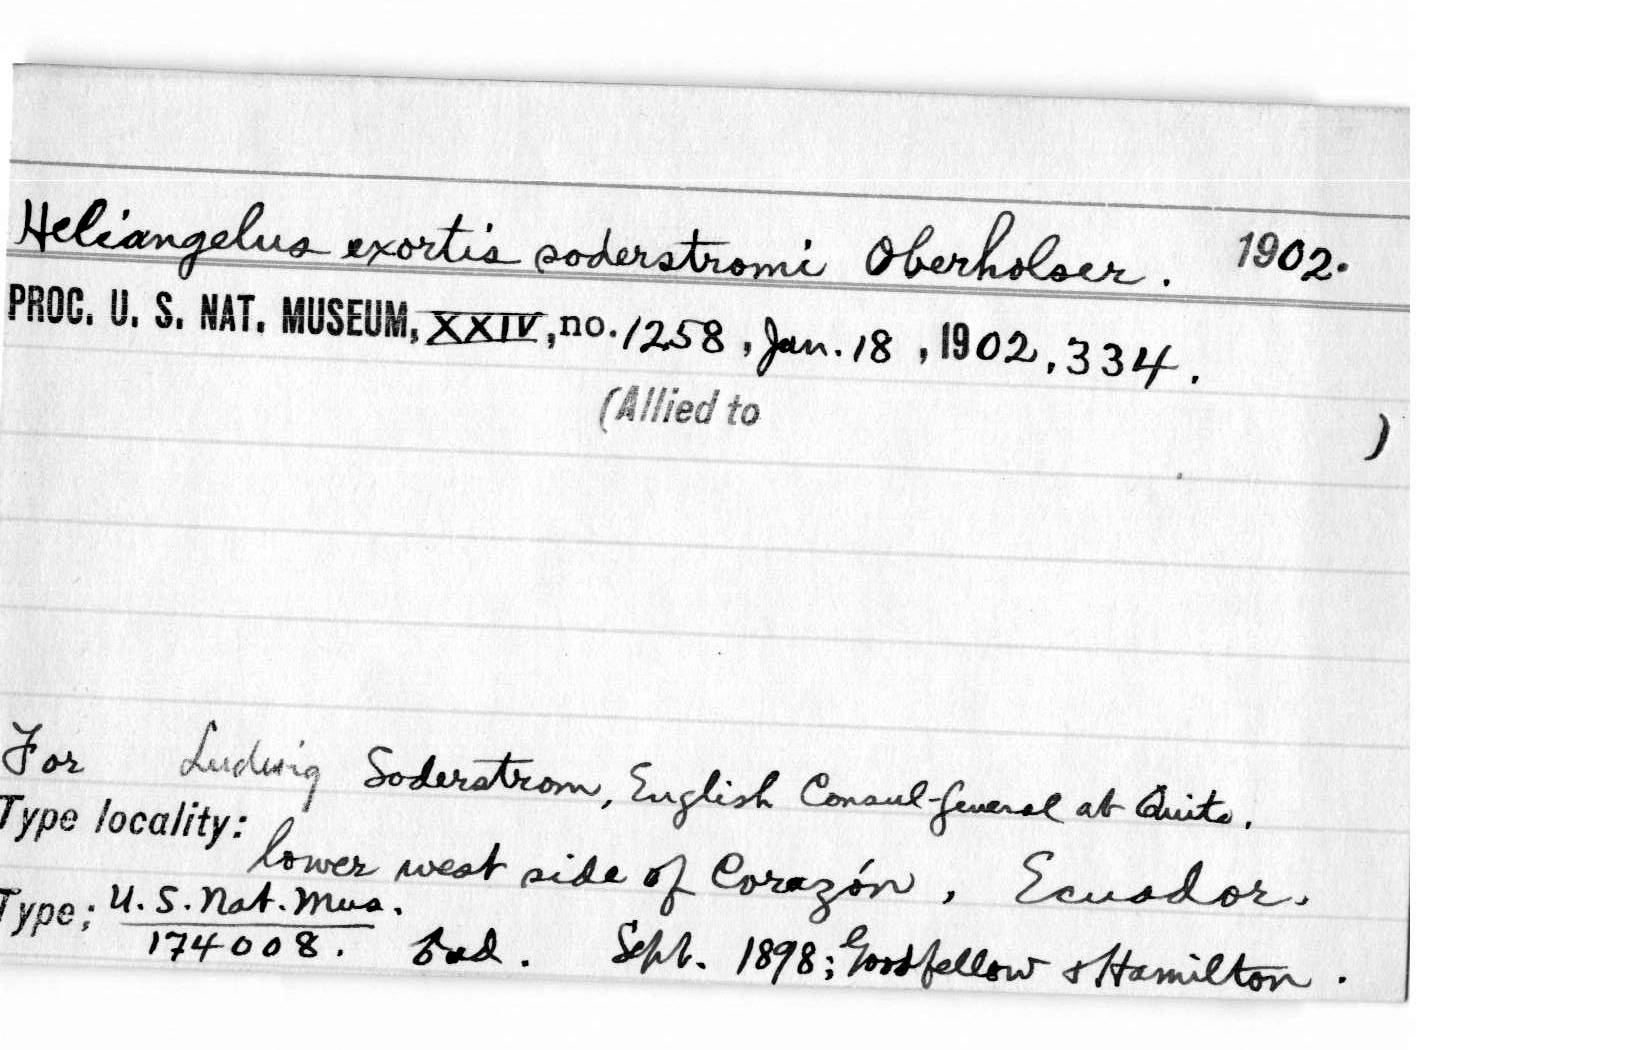 Heliangelus exortis soderstromi Oberholser. 1902.
PROC. U. S. NAT. MUSEUM, XXIV, no. 1258, Jan. 18, 1902, 334.
(Allied to )
For Ludwig Soderstrom, English Consul-General at Quito.
Type locality:
lower west side of Corazón, Ecuador.
Type; U. S. Nat. Mus.
174008. Sept. 1898; Goodfellow & Hamilton.